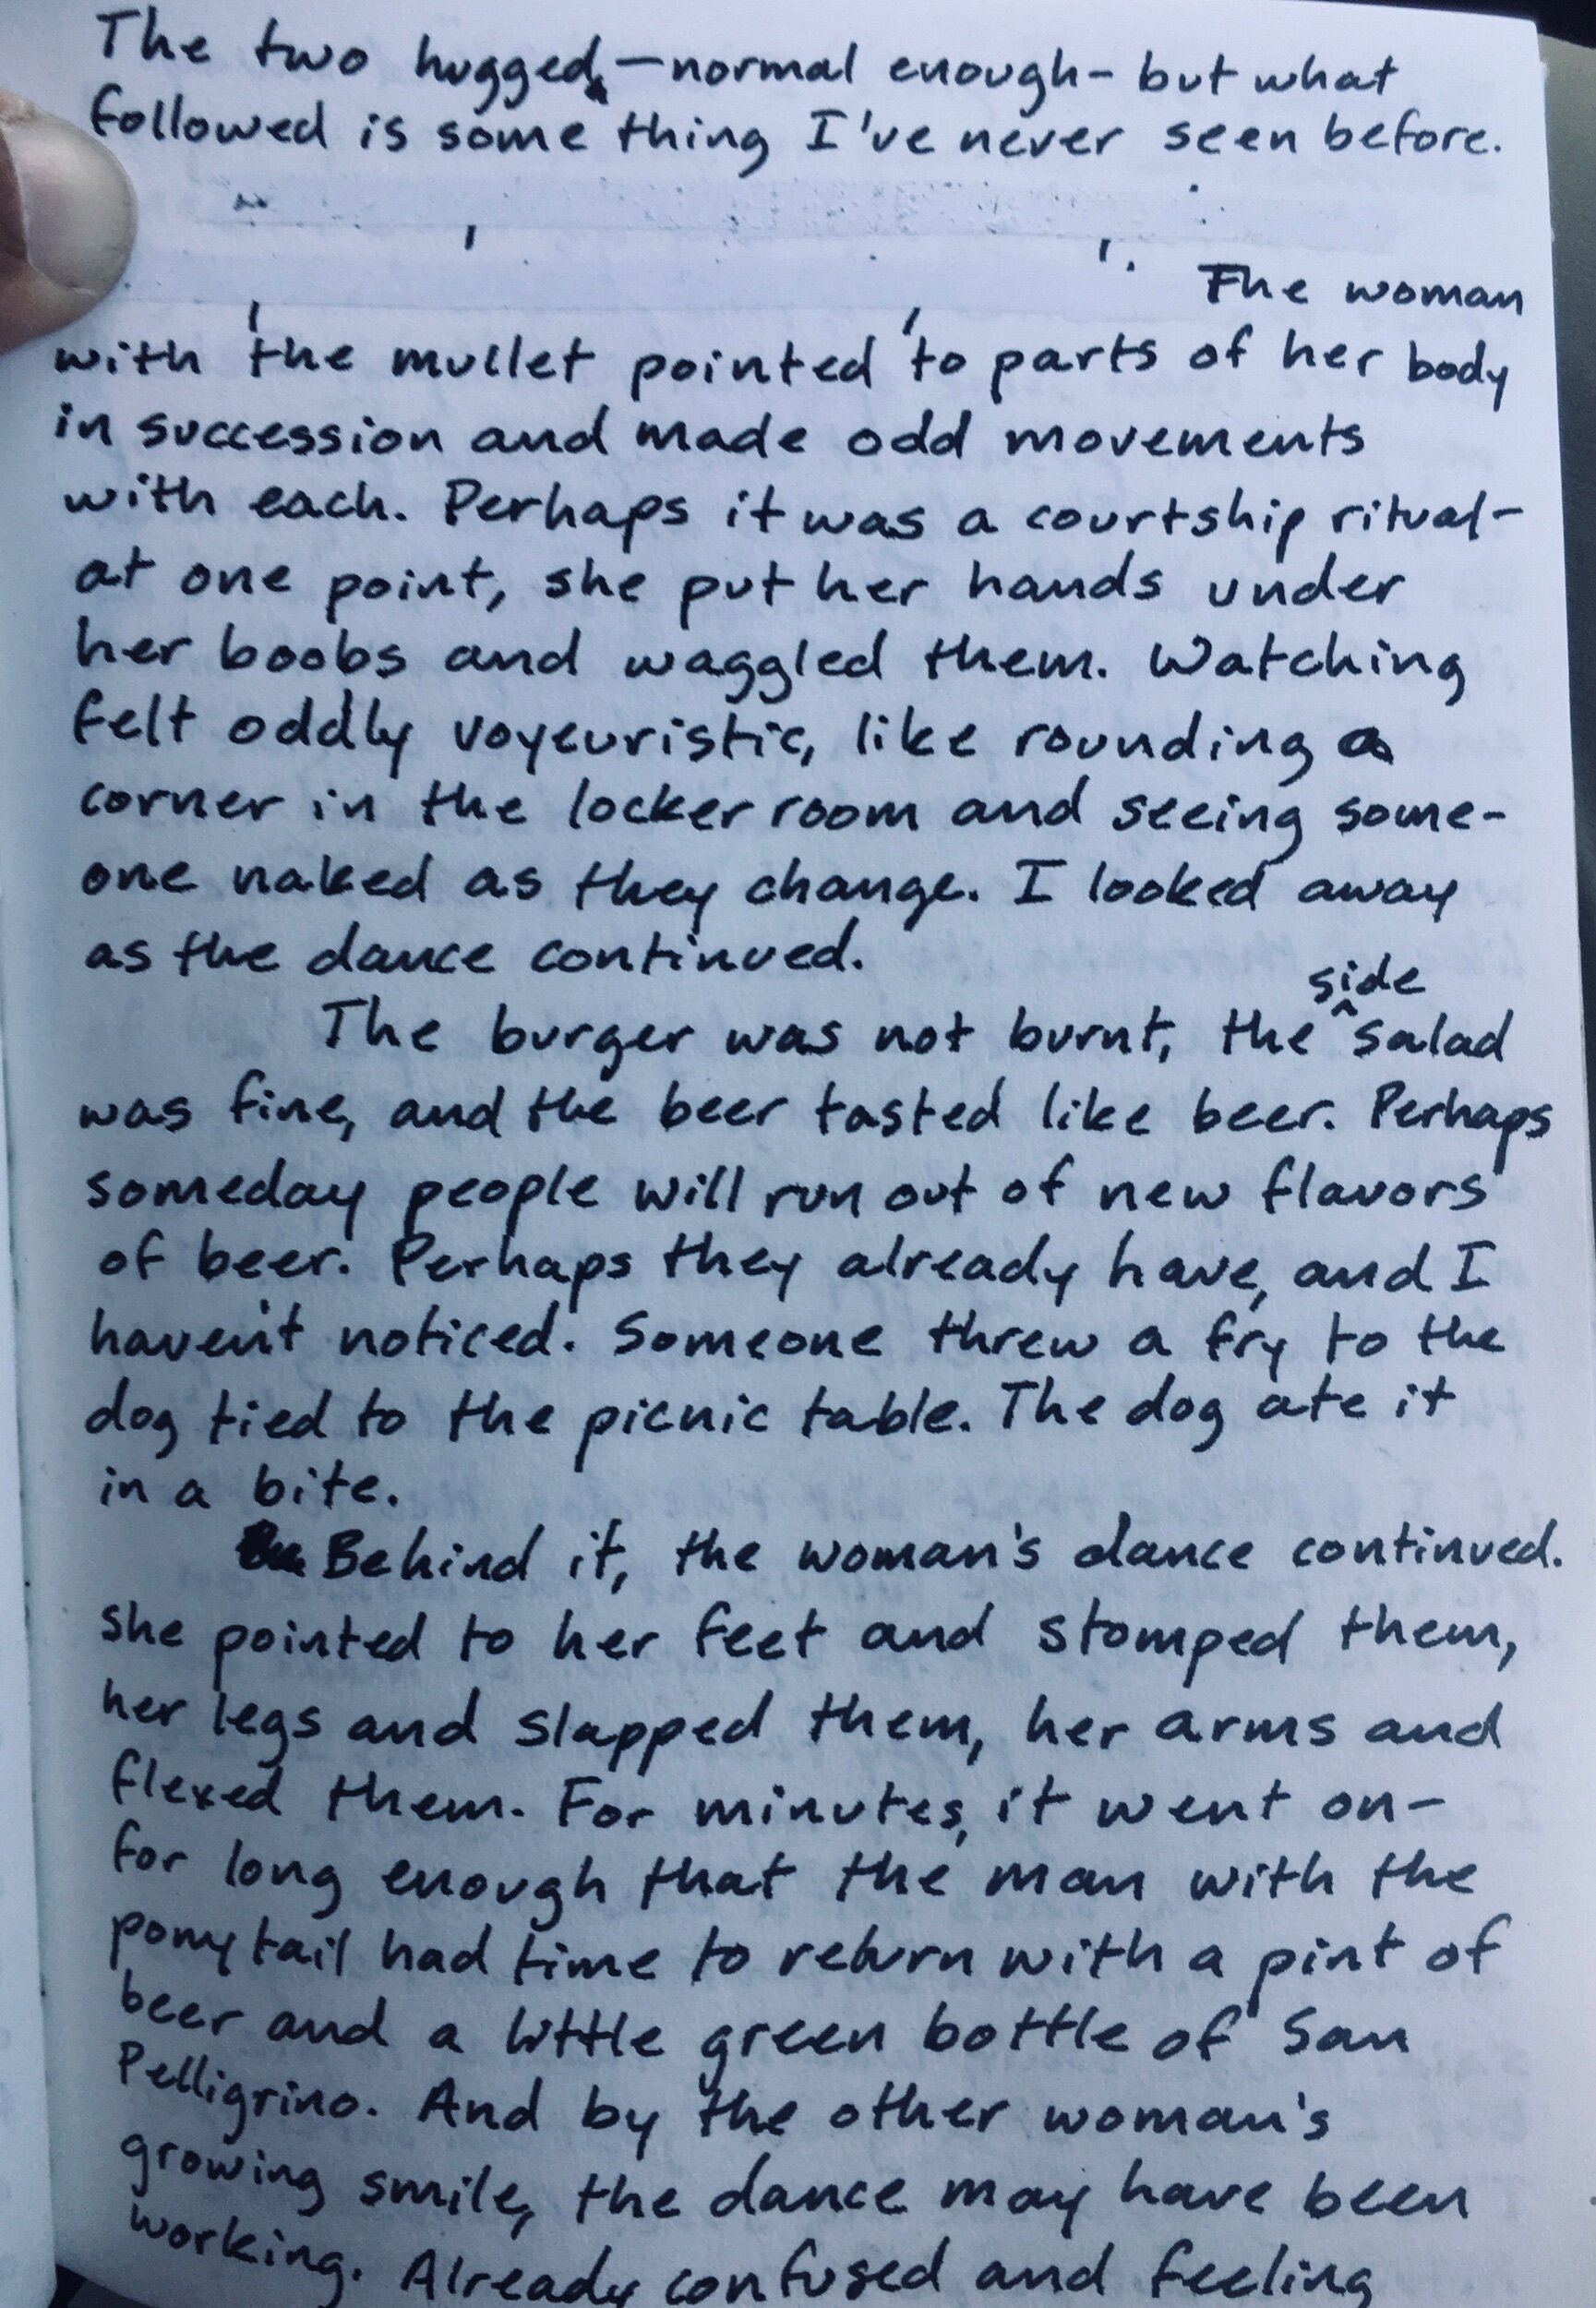 The two hugged—normal enough—but what
followed is some thing I've never seen before.
The woman
with the mullet pointed to parts of her body
in succession and made odd movements
with each. Perhaps it was a courtship ritual—
at one point, she put her hands under
her boobs and waggled them. Watching
felt oddly voyeuristic, like rounding a
corner in the locker room and seeing some-
one naked as they change. I looked away
as the dance continued.
side
The burger was not burnt, the ^ salad
was fine, and the beer tasted like beer. Perhaps
someday people will run out of new flavors
of beer. Perhaps they already have, and I
haven't noticed. Someone threw a fry to the
dog tied to the picnic table. The dog ate it
in a bite.
Behind it, the woman's dance continued.
She pointed to her feet and stomped them,
her legs and slapped them, her arms and
flexed them. For minutes, it went on—
for long enough that the man with the
ponytail had time to return with a pint of
beer and a little green bottle of San
Pelligrino. And by the other woman's
growing smile, the dance may have been
working. Already confused and feeling